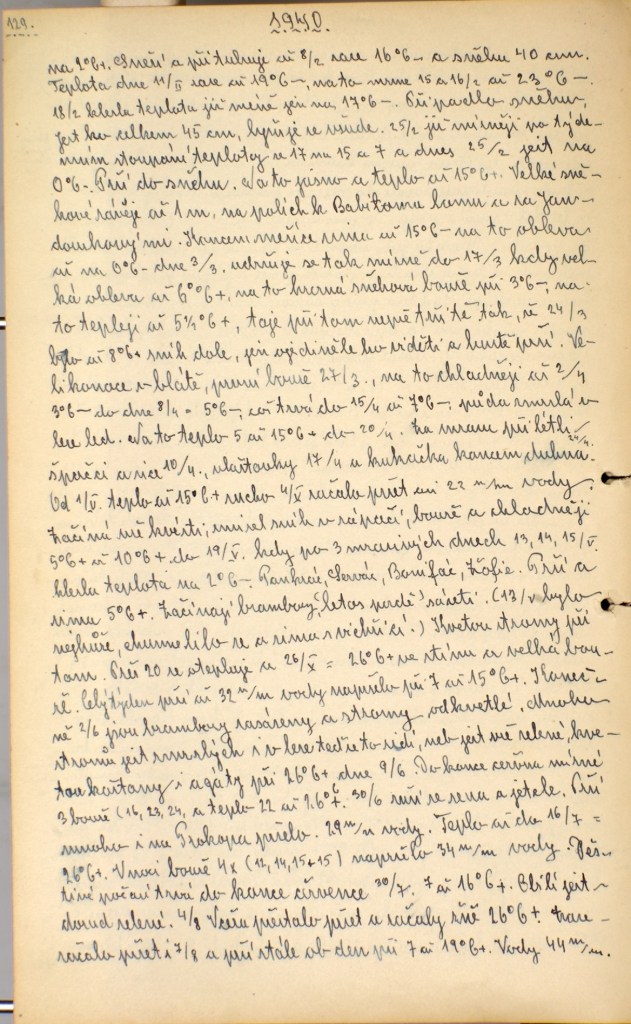 129.
1940.
na 2°C+. Sněží a přituhuje až 8/2 zase 16°C- a sněhu 40 cm.
Teplota dne 11/II zase až 19°C-, na to mírné 15 a 16/2 až 23°C-.
18/2 klesla teplota již méně jen na 17°C-. Připadlo sněhu,
jest ho celkem 45 cm, všude. 25/2 již mírněji po týde-
stoupání teploty z 17 na 15 a 7 a dnes 25/2 jest na
0°C-. Prší do sněhu. Na to jasno a teplo až 15°C+. Velké sně-
hové závěje až 1 m, na polích k Babitomu lomu a za Jan-
. Koncem měsíce zima až 15°C- na to obleva
až na 0°C- dne 3/3. udržuje se tak mírně do 17/3 kdy vel-
ká obleva až 6°C+, na to hrozná sněhová bouře při 3°C-, na
to tepleji až 5 °C+, taje při tom tak, že 24/3
bylo až 8°C+ sníh dole, jen ojediněle ho viděti a hustě prší. Ve-
likonoce v blátě, první bouře 27/3., na to chladněji až 2/4
3°C- do dne 8/4 = 5°C-, což trvá do 15/4 až 7°C-, půda zmrzlá v
led. Na to teplo 5 až 15°C+ do 20/4. Za mrazu přilétli
špačci a sice 10/4., vlaštovky 17/4 a kukačka koncem dubna. 24/4.
Od 1/V. teplo až 15°C+ sucho 4/V začalo pršet asi 22 m/m vody.
Začíná vše kvésti, zmizel sníh v zápačí, bouře a chladněji
5°C+ až 10°C+ do 19/V. kdy po 3 mrazivých dnech 13, 14, 15/V.
klesla teplota na 2°C-. Pankrác, Servác, Bonifác, Žofie. Prší a
zima 5°C+. Začínají brambory letos pozdě sázeti. (13/V bylo
nejhůře, chumelilo se a zima s vichřicí.) Kvetou stromy při
tom. Přes 20 se otepluje a 26/V = 26°C+ ve stínu a velká bou-
ře. Celý týden prší až 32 m/m vody napršelo při 7 až 15°C+. Koneč-
ně 2/6 jsou brambory zasázeny a stromy odkvetlé. Mnoho
stromů jest zmrzlých i v teď se to vidí, neb jest vše zelené, kve-
tou kaštany i agáty při 26°C+ dne 9/6. Do konce června mírné
3 bouře (16, 23, 24, a teplo 22 až 26°C+. 30/6 suší se sena a jetele. Prší
mnoho i na Prokopa pršelo. 29 m/m vody. Teplo až do 16/7 =
26°C+. V noci bouře 4x (12, 14, 15+15) napršelo 34 m/m vody. Deš-
tivé počasí trvá do konce července 30/7. 7 až 16°C+. Obilí jest
dosud zelené. 4/8 Včera přestalo pršet a začaly žně 26°C+. Zase
začalo pršet i 7/8 a prší stále ob den při 7 až 19°C+. Vody 44 m/m.